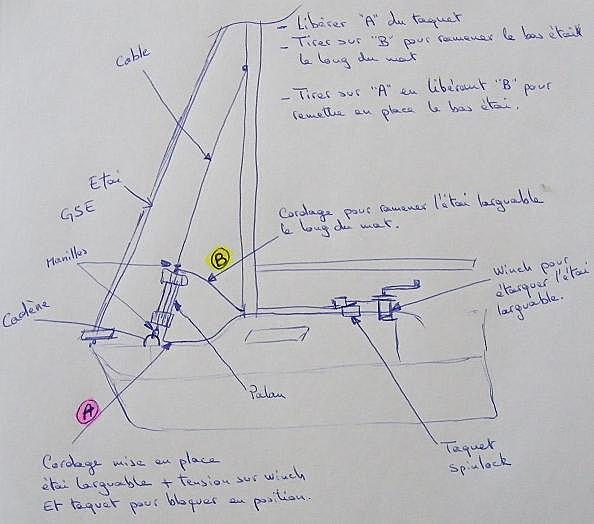 - Libérer "A" du taquet
- Tirer sur "B" pour ramener le bas étai
le long du mat
- Tirer sur "A" en libérant "B" pour
remettre en place le bas étai.
Cable
Etai
GSE
Cordage pour ramener l'étai larguable
le long du mat.
Manilles
B
Winch pour
étarquer l'étai
larguable.
Cadène
Palan
A
Taquet
spinlock
Cordage mise en place
étai larguable + tension sur winch
Et taquet pour bloquer en position.